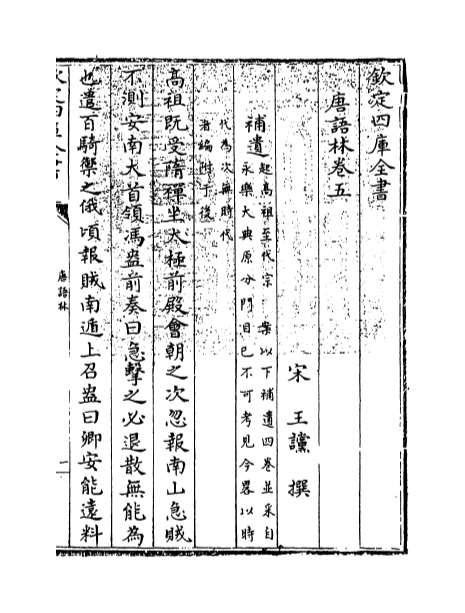 欽定四庫全書
唐語林卷五
宋 王讜 撰
補遺
起高祖至代宗 案以下補遺四卷並采自
永樂大典原分門目已不可考見今畧以時
代為次無時代
者編附于後
高祖既受隋禪坐太極前殿會朝之次忽報南山急賊
不測安南大首領馮盎前奏曰急擊之必退散無能為
也遣百騎禦之俄頃報賊南遁上召盎曰卿安能遠料
唐語林
一